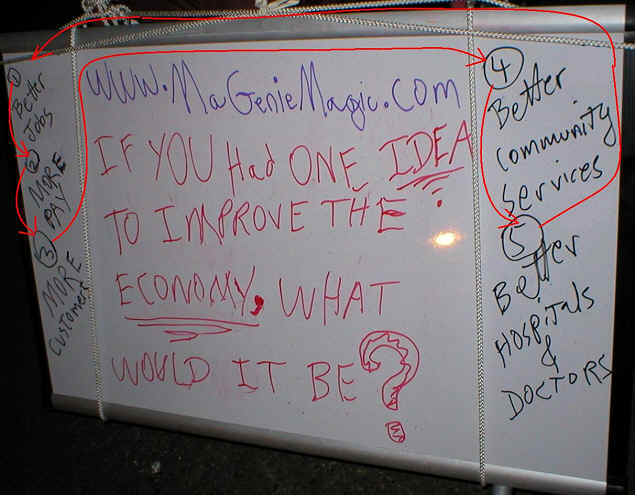 1
Better
Jobs
2
MORE
PAY
3
MORE
Customers
www.MaGenieMagic.com
IF YOU Had ONE IDEA
TO IMPROVE THE
ECONOMY, WHAT
WOULD IT BE?
4
Better
Community
Services
5
Better
HOSPitals
&
DOCTORS